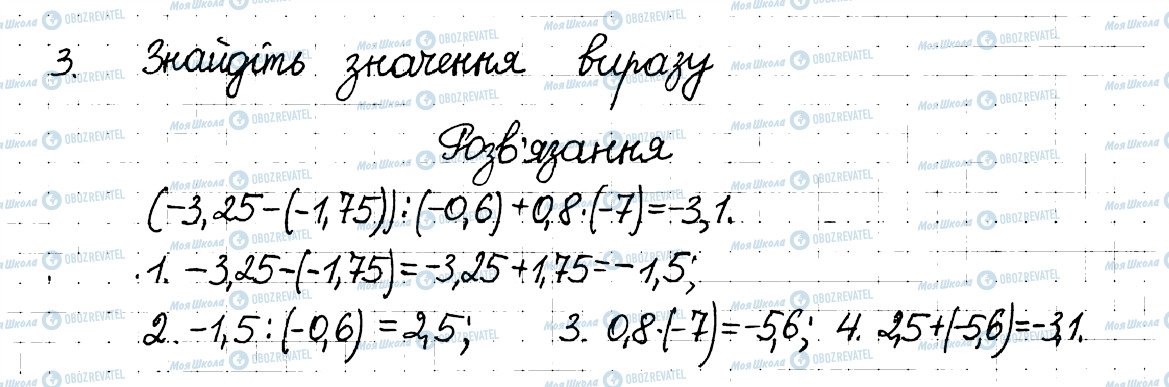 3. Знайдіть значення виразу
Розв'язання
(-3,25-(-1,75)):(-0,6)+0,8·(-7)=-3,1.
1. -3,25-(-1,75)=-3,25+1,75=-1,5;
2. -1,5:(-0,6)=2,5; 3. 0,8·(-7)=-5,6; 4. 2,5+(-5,6)=-3,1.
Моя Школа OBOZREVATEL